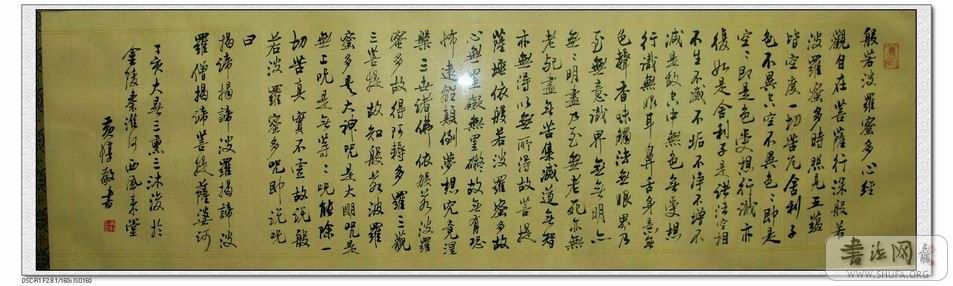 般若波羅蜜多心經
觀自在菩薩行深般若
波羅蜜多時照見五蘊
皆空度一切苦厄舍利子
色不異空空不異色色即是
空空即是色受想行識亦
復如是舍利子是諸法空相
不生不滅不垢不淨不增不
減是故空中無色無受想
行識無眼耳鼻舌身意無
色聲香味觸法無眼界乃
至無意識界無無明亦
無無明盡乃至無老死亦無
老死盡無苦集滅道無智
亦無得以無所得故菩提
薩埵依般若波羅蜜多故
心無罣礙無罣礙故無有恐
怖遠離顛倒夢想究竟涅
槃三世諸佛依般若波羅
蜜多故得阿耨多羅三藐
三菩提故知般若波羅
蜜多是大神咒是大明咒是
無上咒是無等等咒能除一
切苦真實不虛故說般
若波羅蜜多咒即說咒
曰
揭諦揭諦波羅揭諦波
羅僧揭諦菩提薩婆訶
丁亥大春三熏三沐後於
金陵秦淮河西風來堂
敬書
DSC-R1 F2.8 1/160s ISO160
书法网
WWW.SHUFA.ORG